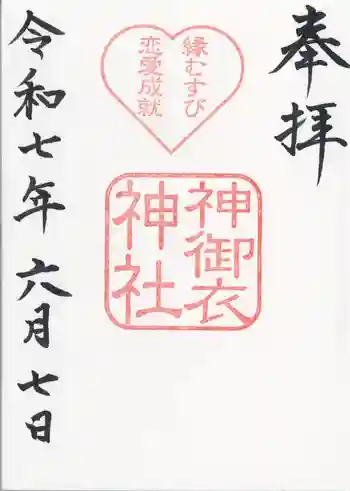 奉拝
縁むすび
恋愛成就
神御衣
神社
令和七年六月七日